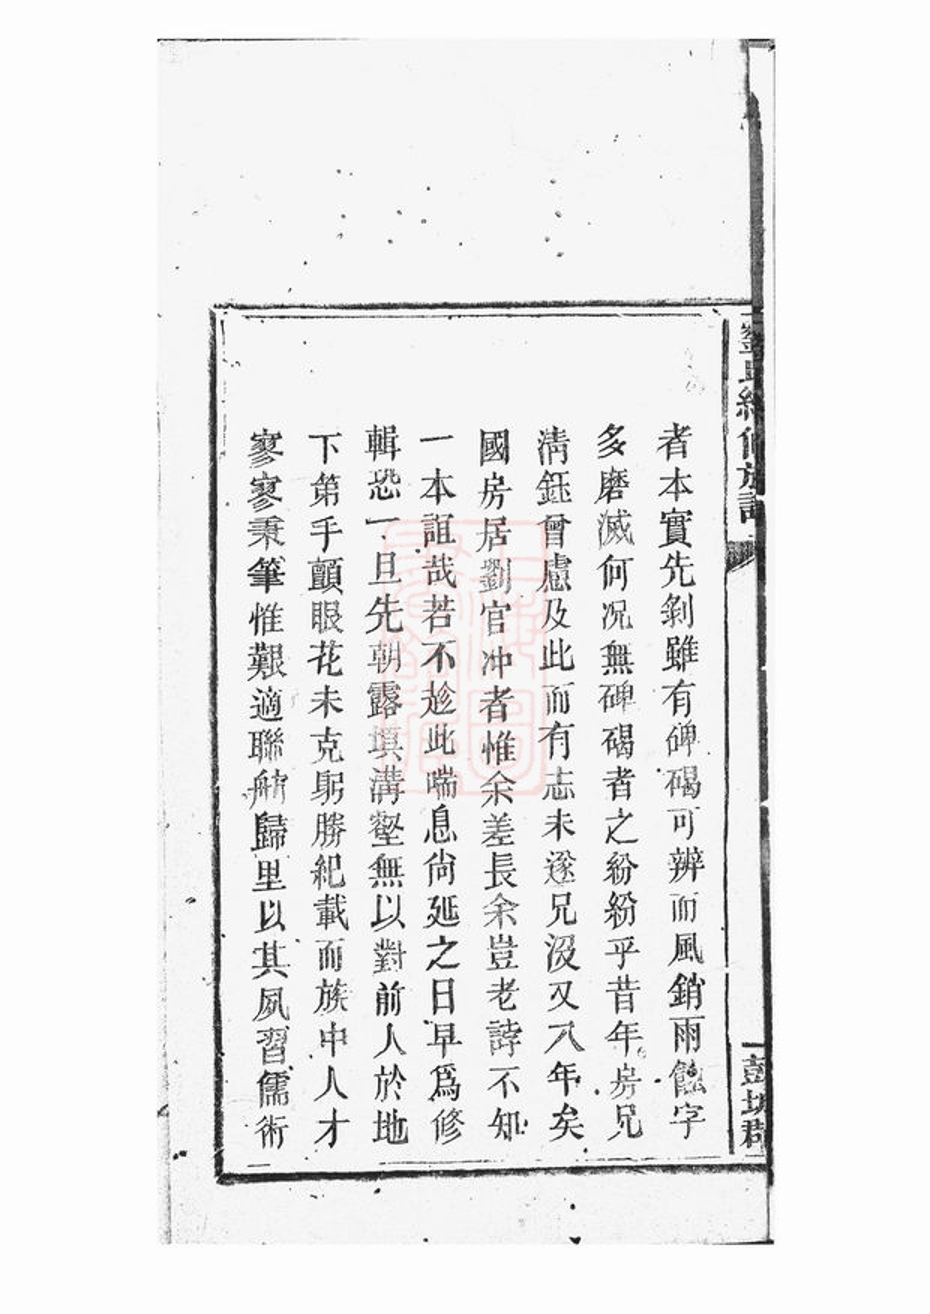 者本實先剝雖有碑碣可辨而風銷雨蝕字
多磨滅何况無碑碣者之紛紛乎昔年房兄
清鈺曾慮及此而有志未遂兄沒又八年矣
國房居劉官冲者惟余差長余豈老誖不知
一本誼哉若不趁此喘息尚延之日早爲修
輯恐一旦先朝露填溝壑無以對前人於地
下第手顫眼花未克躬勝紀載而族中人才
寥寥秉筆惟艱適聯舫歸里以其夙習儒術
彭城郡